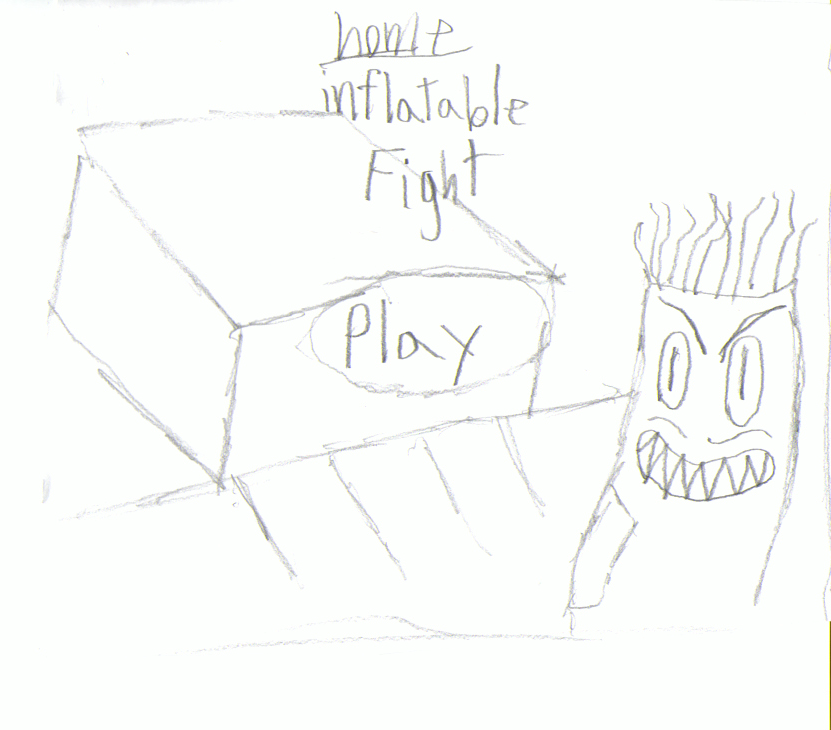 home
inflatable
Fight
Play